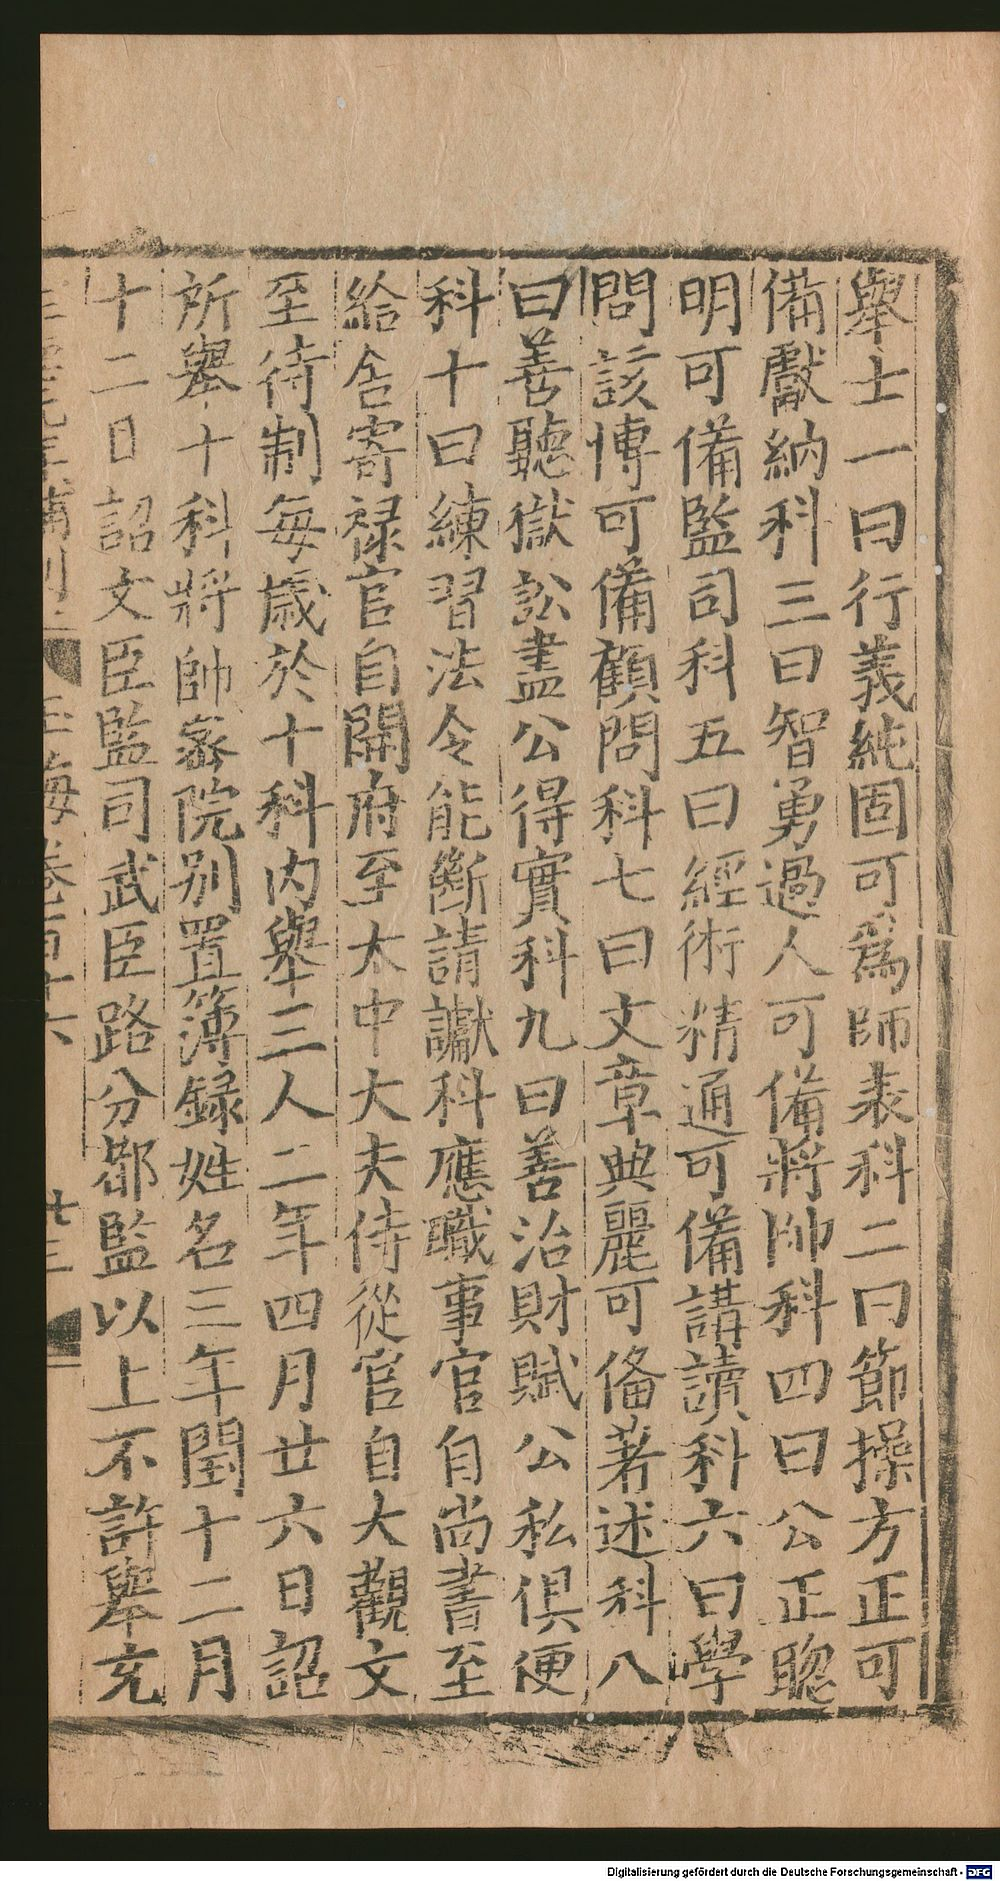 舉士一曰行義純固可爲師表科二曰節操方正可
備獻納科三曰智勇過人可備將帥科四曰公正聰
明可備監司科五曰經術精通可備講讀科六曰學
問該博可備顧問科七曰文章典麗可俻著述科八
曰善聽獄訟盡公得實科九曰善治財賦公私俱便
科十曰練習法令能斷請讞科應職事官自尚書至
給舍寄禄官自開府至太中大夫侍從官自大觀文
至待制每歲於十科内舉三人二年四月廿六日詔
所舉十科將帥密院别置簿録姓名三年閏十二月
十二日詔文臣監司武臣路分都監以上不許舉充
玉海卷百十六
廿三
Digitalisierung gefördert durch die Deutsche Forschungsgemeinschaft - DFG